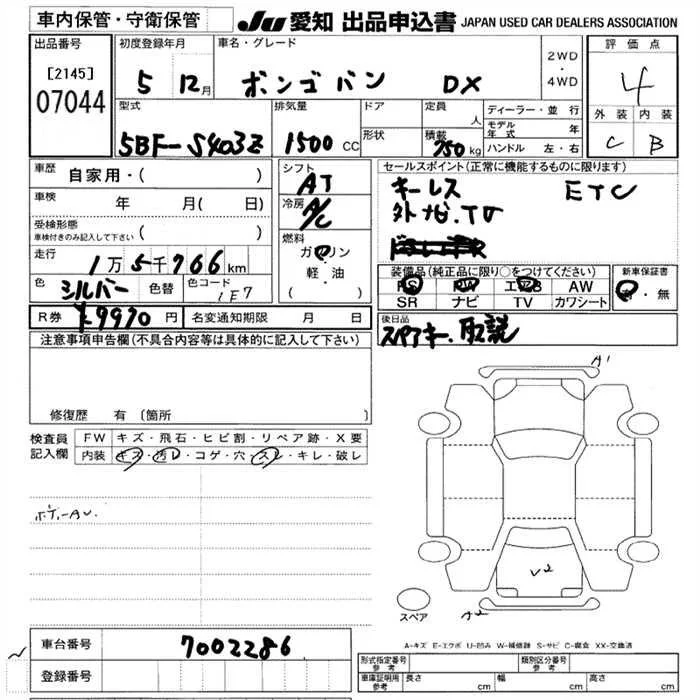 車内保管・守衛保管 JU 愛知 出品申込書 JAPAN USED CAR DEALERS ASSOCIATION
出品番号 初度登録年月 車名・グレード 2WD・4WD 評価点
[2145]
07044
5 12月 ボンゴバン DX 4
外装 内装
C B
型式 排気量 ドア 定員 人 ディーラー・並行
5BF-S403Z 1500CC 形状 積載 750kg モデル年式 年
ハンドル 左・右
車歴 自家用・( ) シフト AT セールスポイント(正常に機能するものに限ります)
車検 年 月( 日) 冷房 A/C キーレス ETC
受検形態 外ナビ.TV
車検付きのみ記入して下さい ( )
燃料 ガソリン・軽・油 ( )
走行 1万5千766km
装備品(純正品に限り○をつけてください) 新車保証書
PS PW エアB AW 有・無
SR ナビ TV カワシート
色 シルバー 色替 色コード 1E7
R券 ¥9970円 名変通知期限 月 日
後日品
スペアキー.取説
注意事項申告欄(不具合内容等は具体的に記入して下さい)
修復歴 有 〔箇所 〕
検査員記入欄 FW キズ・飛石・ヒビ割・リペア跡・X要
内装 キズ・汚レ・コゲ・穴・スレ・キレ・破レ
ボディーAU.
A1
V2
A2
スペア
A-キズ E-エクボ U-凹み W-補修跡 S-サビ C-腐食 XX-交換済
車台番号 7002286
登録番号
形式指定番号 参考 類別区分番号 参考
車庫証明用 参考 長さ cm 幅 cm 高さ cm